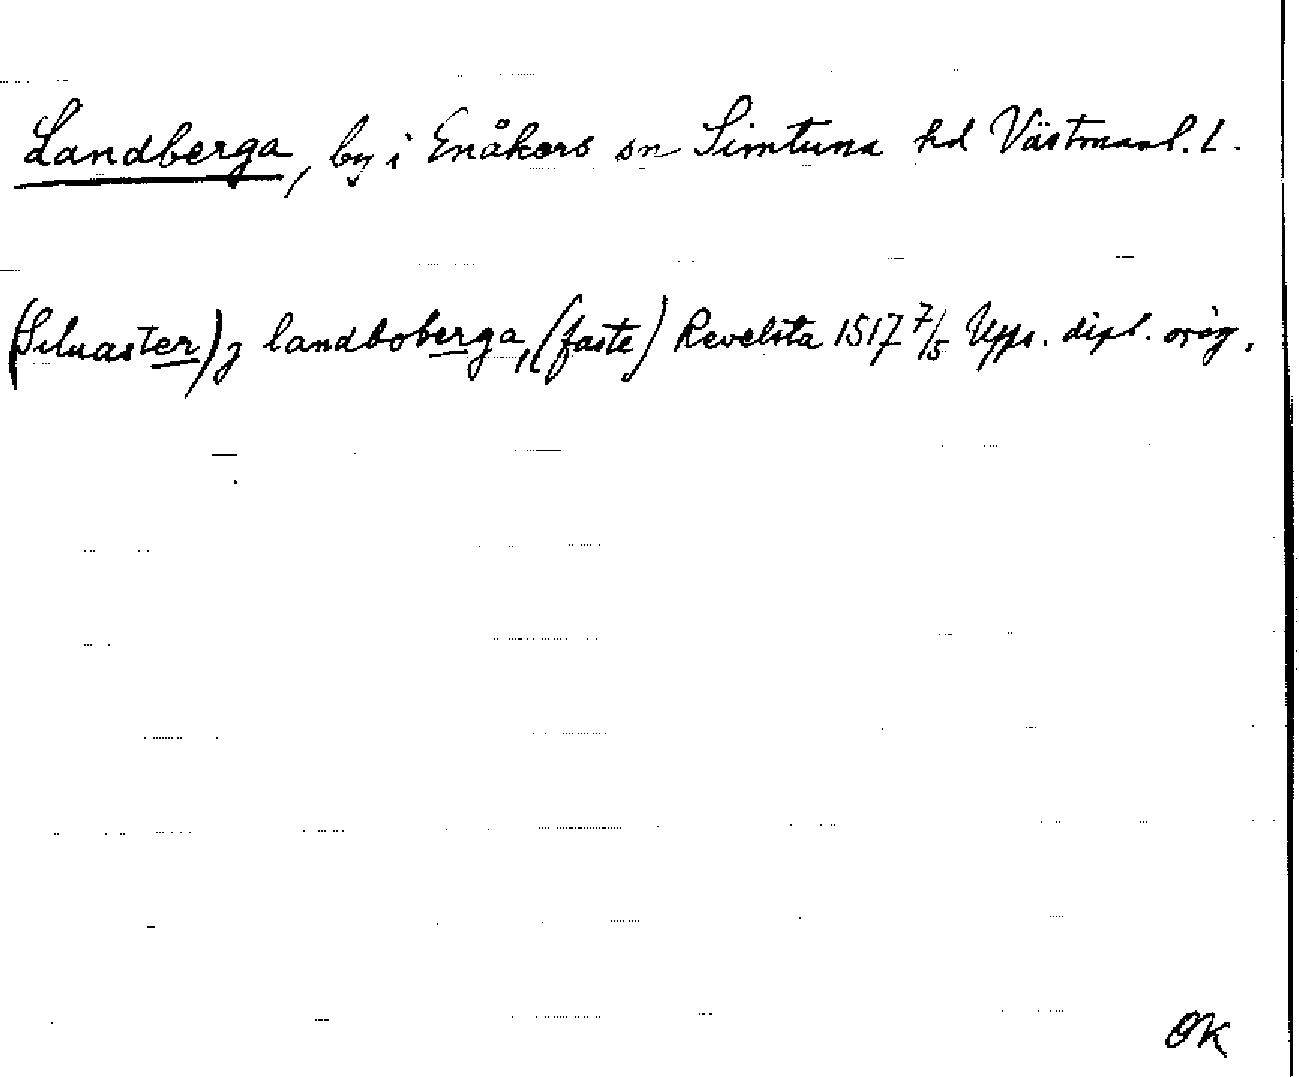 Landberga, by i Enåkers sn Simtuna hd Västmanl. l.
(Siluaster) j landboberga, (faste) Revelsta 1517 7/5 Upps. dipl. orig.
OK